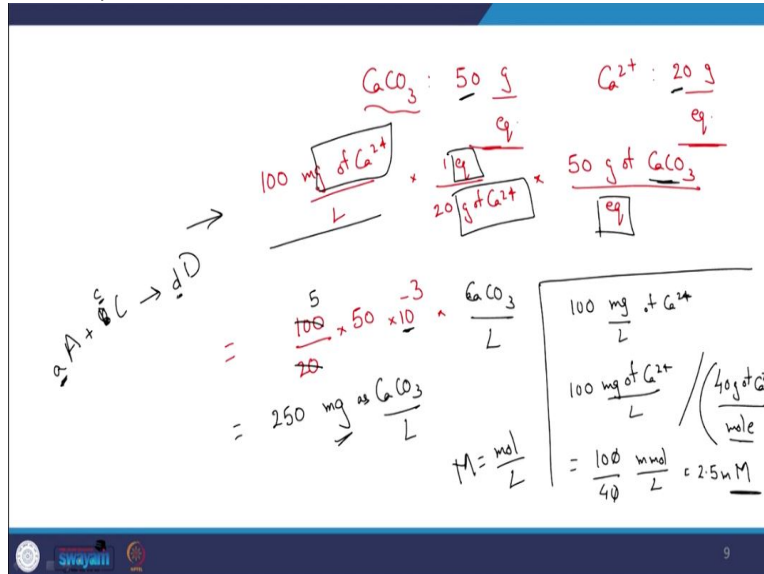 CaCO3 : 50 g/eq. Ca2+ : 20 g/eq.
→ 100 mg of Ca2+/L × 1 eq/20 g of Ca2+ × 50 g of CaCO3/eq
aA + cC → dD
= 5 100/20 × 50 × 10-3 × CaCO3/L
= 250 mg as CaCO3/L
M = mol/L
100 mg/L of Ca2+
100 mg of Ca2+/L / (40 g of Ca/mole
= 100/40 mmol/L = 2.5 mM
swayam
9